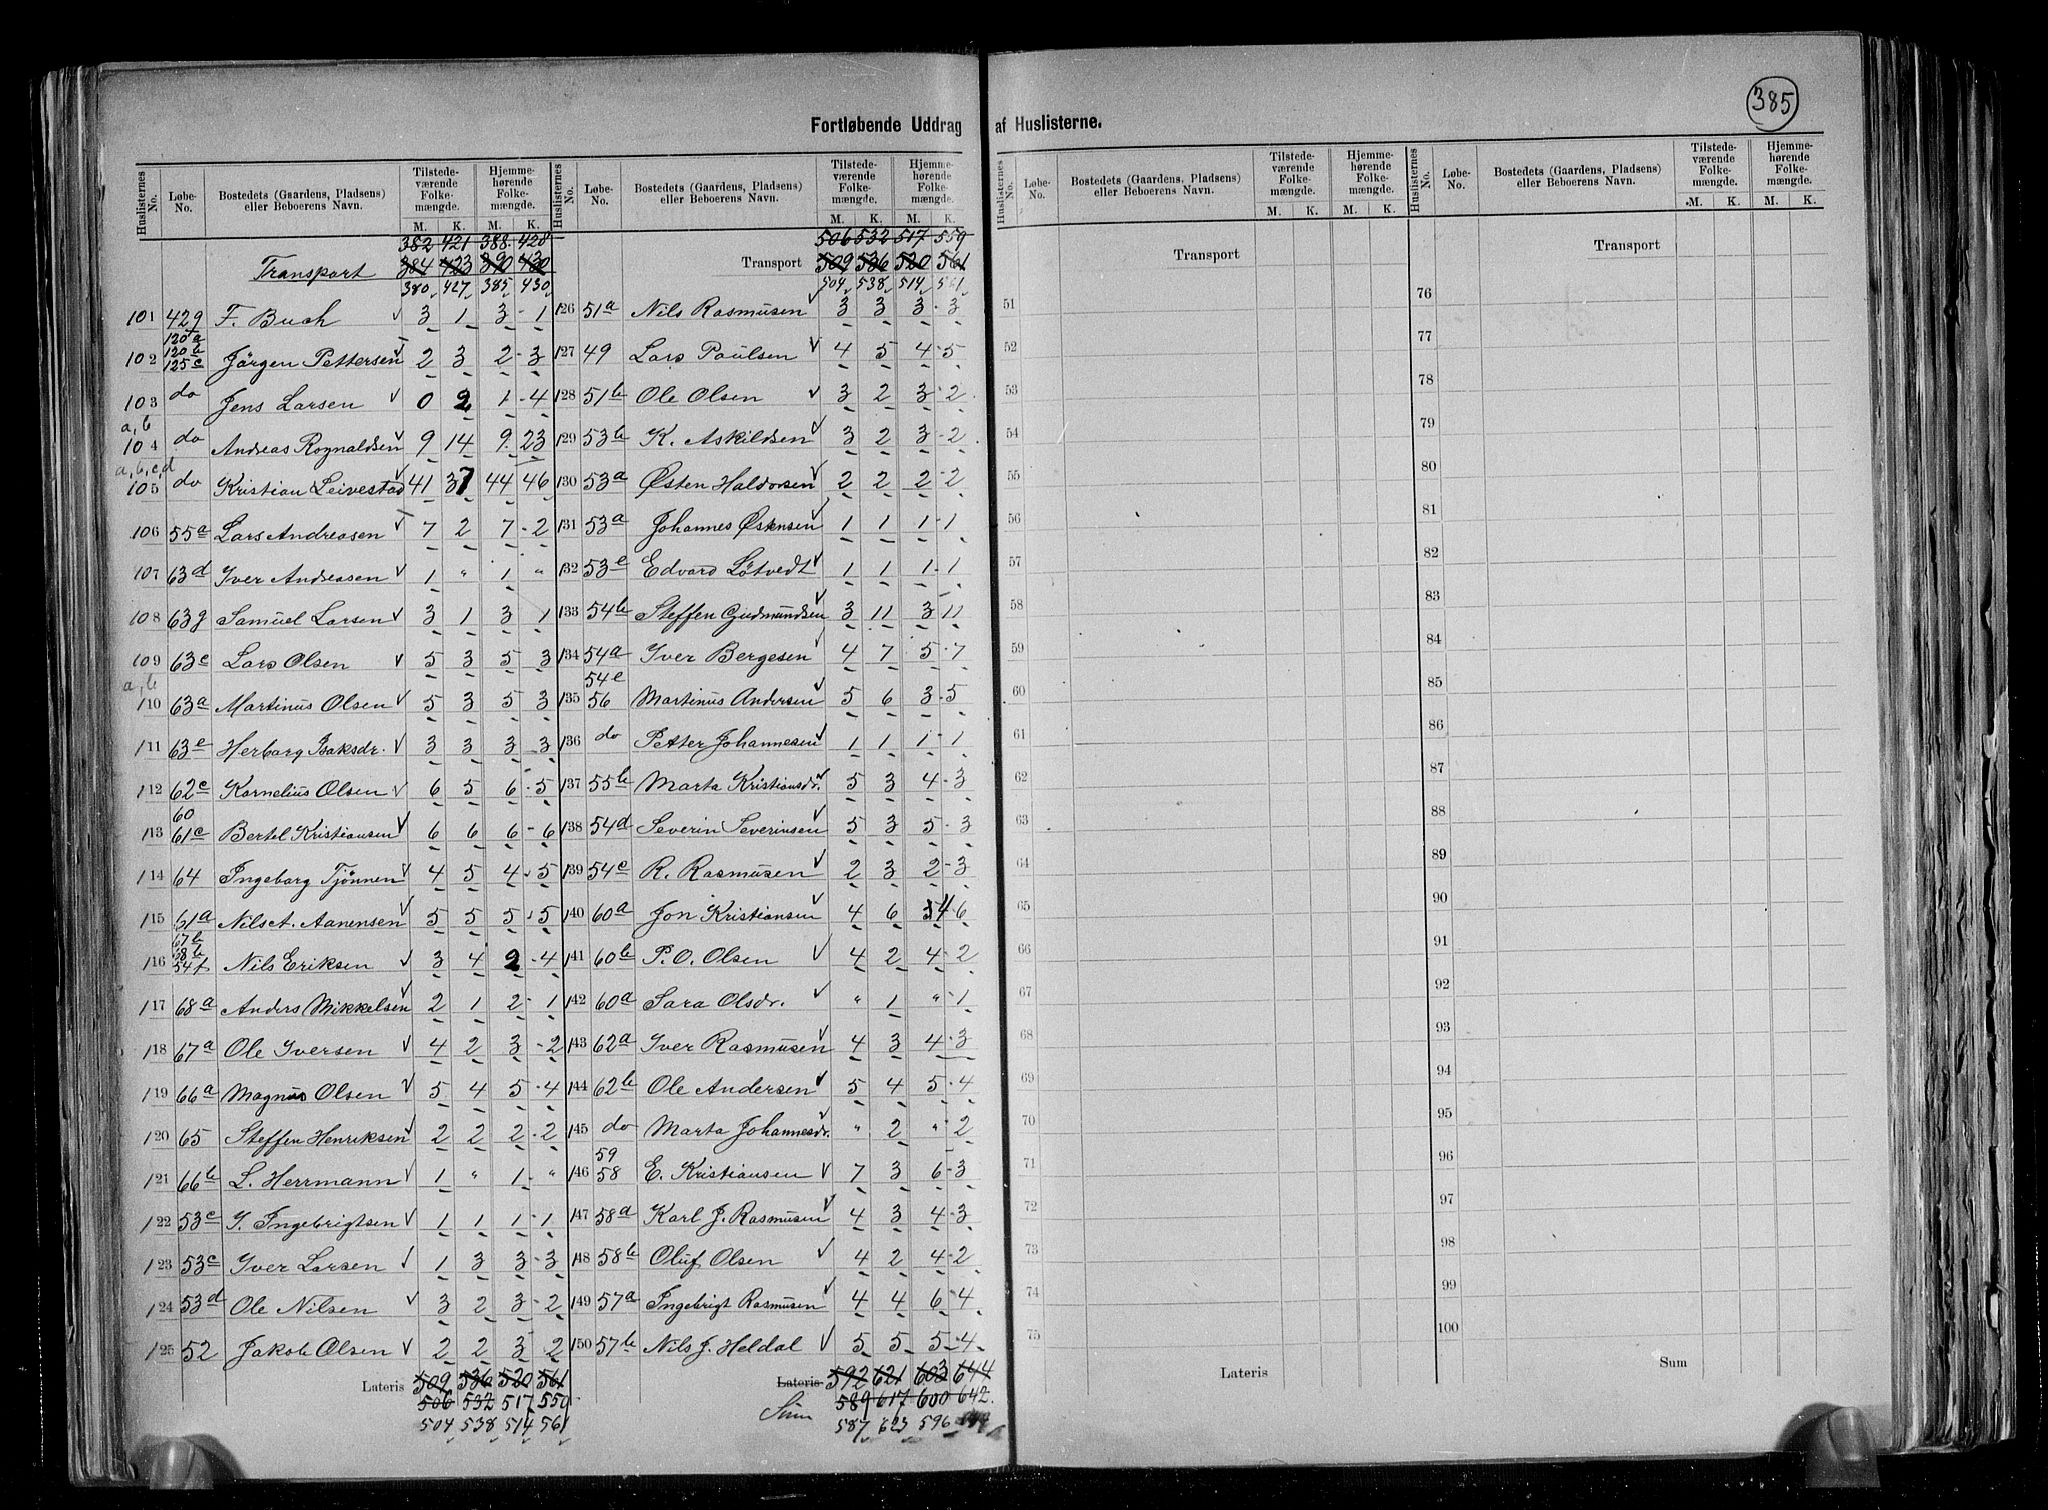 385
Fortløbende Uddrag af Huslisterne.
Huslisternes No. Løbe-No. Bostedets (Gaardens, Pladsens) eller Beboerens Navn. Tilstedeværende Folkemængde. M. K. Hjemmehørende Folkemængde. M. K.
382 421 388 428
Transport 384 423 390 430
380 427 385 430
101 429 F. Buch 3 1 3 1
120a
120b
102 125c Jörgen Pettersen 2 3 2 3
103 do Jens Larsen 0 2 1 4
a, b
104 do Andreas Rognaldsen 9 14 9 23
a, b, c, d
105 do Kristian Leivestad 41 37 44 46
106 55a Lars Andreasen 7 2 7 2
107 63d Iver Andreasen 1 " 1 "
108 63g Samuel Larsen 3 1 3 1
109 63c Lars Olsen 5 3 5 3
a, b
110 63a Martinus Olsen 5 3 5 3
111 63e Herborg Isaksdr. 3 3 3 3
112 62c Kornelius Olsen 6 5 6 5
60
113 61c Bertel Kristiansen 6 6 6 6
114 64 Ingeborg Tjönnen 4 5 4 5
115 61a Nils A. Aanensen 5 5 5 5
67b
68b
116 54f Nils Eriksen 3 4 2 4
117 68a Anders Mikkelsen 2 1 2 1
118 67a Ole Iversen 4 2 3 2
119 66a Magnus Olsen 5 4 5 4
120 65 Steffen Henriksen 2 2 2 2
121 66b L. Herrmann 1 " 1 "
122 53c I. Ingebrigtsen 1 1 1 1
123 53c Iver Larsen 1 3 3 3
124 53d Ole Nilsen 3 2 3 2
125 52 Jakob Olsen 2 2 3 2
Lateris 509 536 520 561
506 532 517 559
504 538 514 561
Huslisternes No. Løbe-No. Bostedets (Gaardens, Pladsens) eller Beboerens Navn. Tilstedeværende Folkemængde. M. K. Hjemmehørende Folkemængde. M. K.
506 532 517 559
Transport 509 536 520 561
504 538 514 561
126 51a Nils Rasmusen 3 3 3 3
127 49 Lars Poulsen 4 5 4 5
128 51b Ole Olsen 3 2 3 2
129 53b K. Askildsen 3 2 3 2
130 53a Østen Haldorsen 2 2 2 2
131 53a Johannes Østensen 1 1 1 1
132 53e Edvard Løtvedt 1 1 1 1
133 54b Steffen Gudmundsen 3 11 3 11
134 54a Iver Bergesen 4 7 5 7
54e
135 56 Martinus Andersen 5 6 3 5
136 do Petter Johannesen 1 1 1 1
137 55b Marta Kristiansdr. 5 3 4 3
138 54d Severin Severinsen 5 3 5 3
139 54c R. Rasmusen 2 3 2 3
140 60a Jon Kristiansen 4 6 4 6
141 60b P. O. Olsen 4 2 4 2
142 60a Sara Olsdr. " 1 " 1
143 62a Iver Rasmusen 4 3 4 3
144 62b Ole Andersen 5 4 5 4
145 do Marta Johannesdr. " 2 " 2
59
146 58 E. Kristiansen 7 3 6 3
147 58a Karl J. Rasmusen 4 3 4 3
148 58b Oluf Olsen 4 2 4 2
149 57a Ingebrigt Rasmusen 4 4 6 4
150 57b Nils J. Heldal 5 5 5 4
Lateris 592 621 603 644
Sum 589 617 600 642
587 623 596
Huslisternes No. Løbe-No. Bostedets (Gaardens, Pladsens) eller Beboerens Navn. Tilstedeværende Folkemængde. M. K. Hjemmehørende Folkemængde. M. K.
Transport
51
52
53
54
55
56
57
58
59
60
61
62
63
64
65
66
67
68
69
70
71
72
73
74
75
Lateris
Huslisternes No. Løbe-No. Bostedets (Gaardens, Pladsens) eller Beboerens Navn. Tilstedeværende Folkemængde. M. K. Hjemmehørende Folkemængde. M. K.
Transport
76
77
78
79
80
81
82
83
84
85
86
87
88
89
90
91
92
93
94
95
96
97
98
99
100
Sum